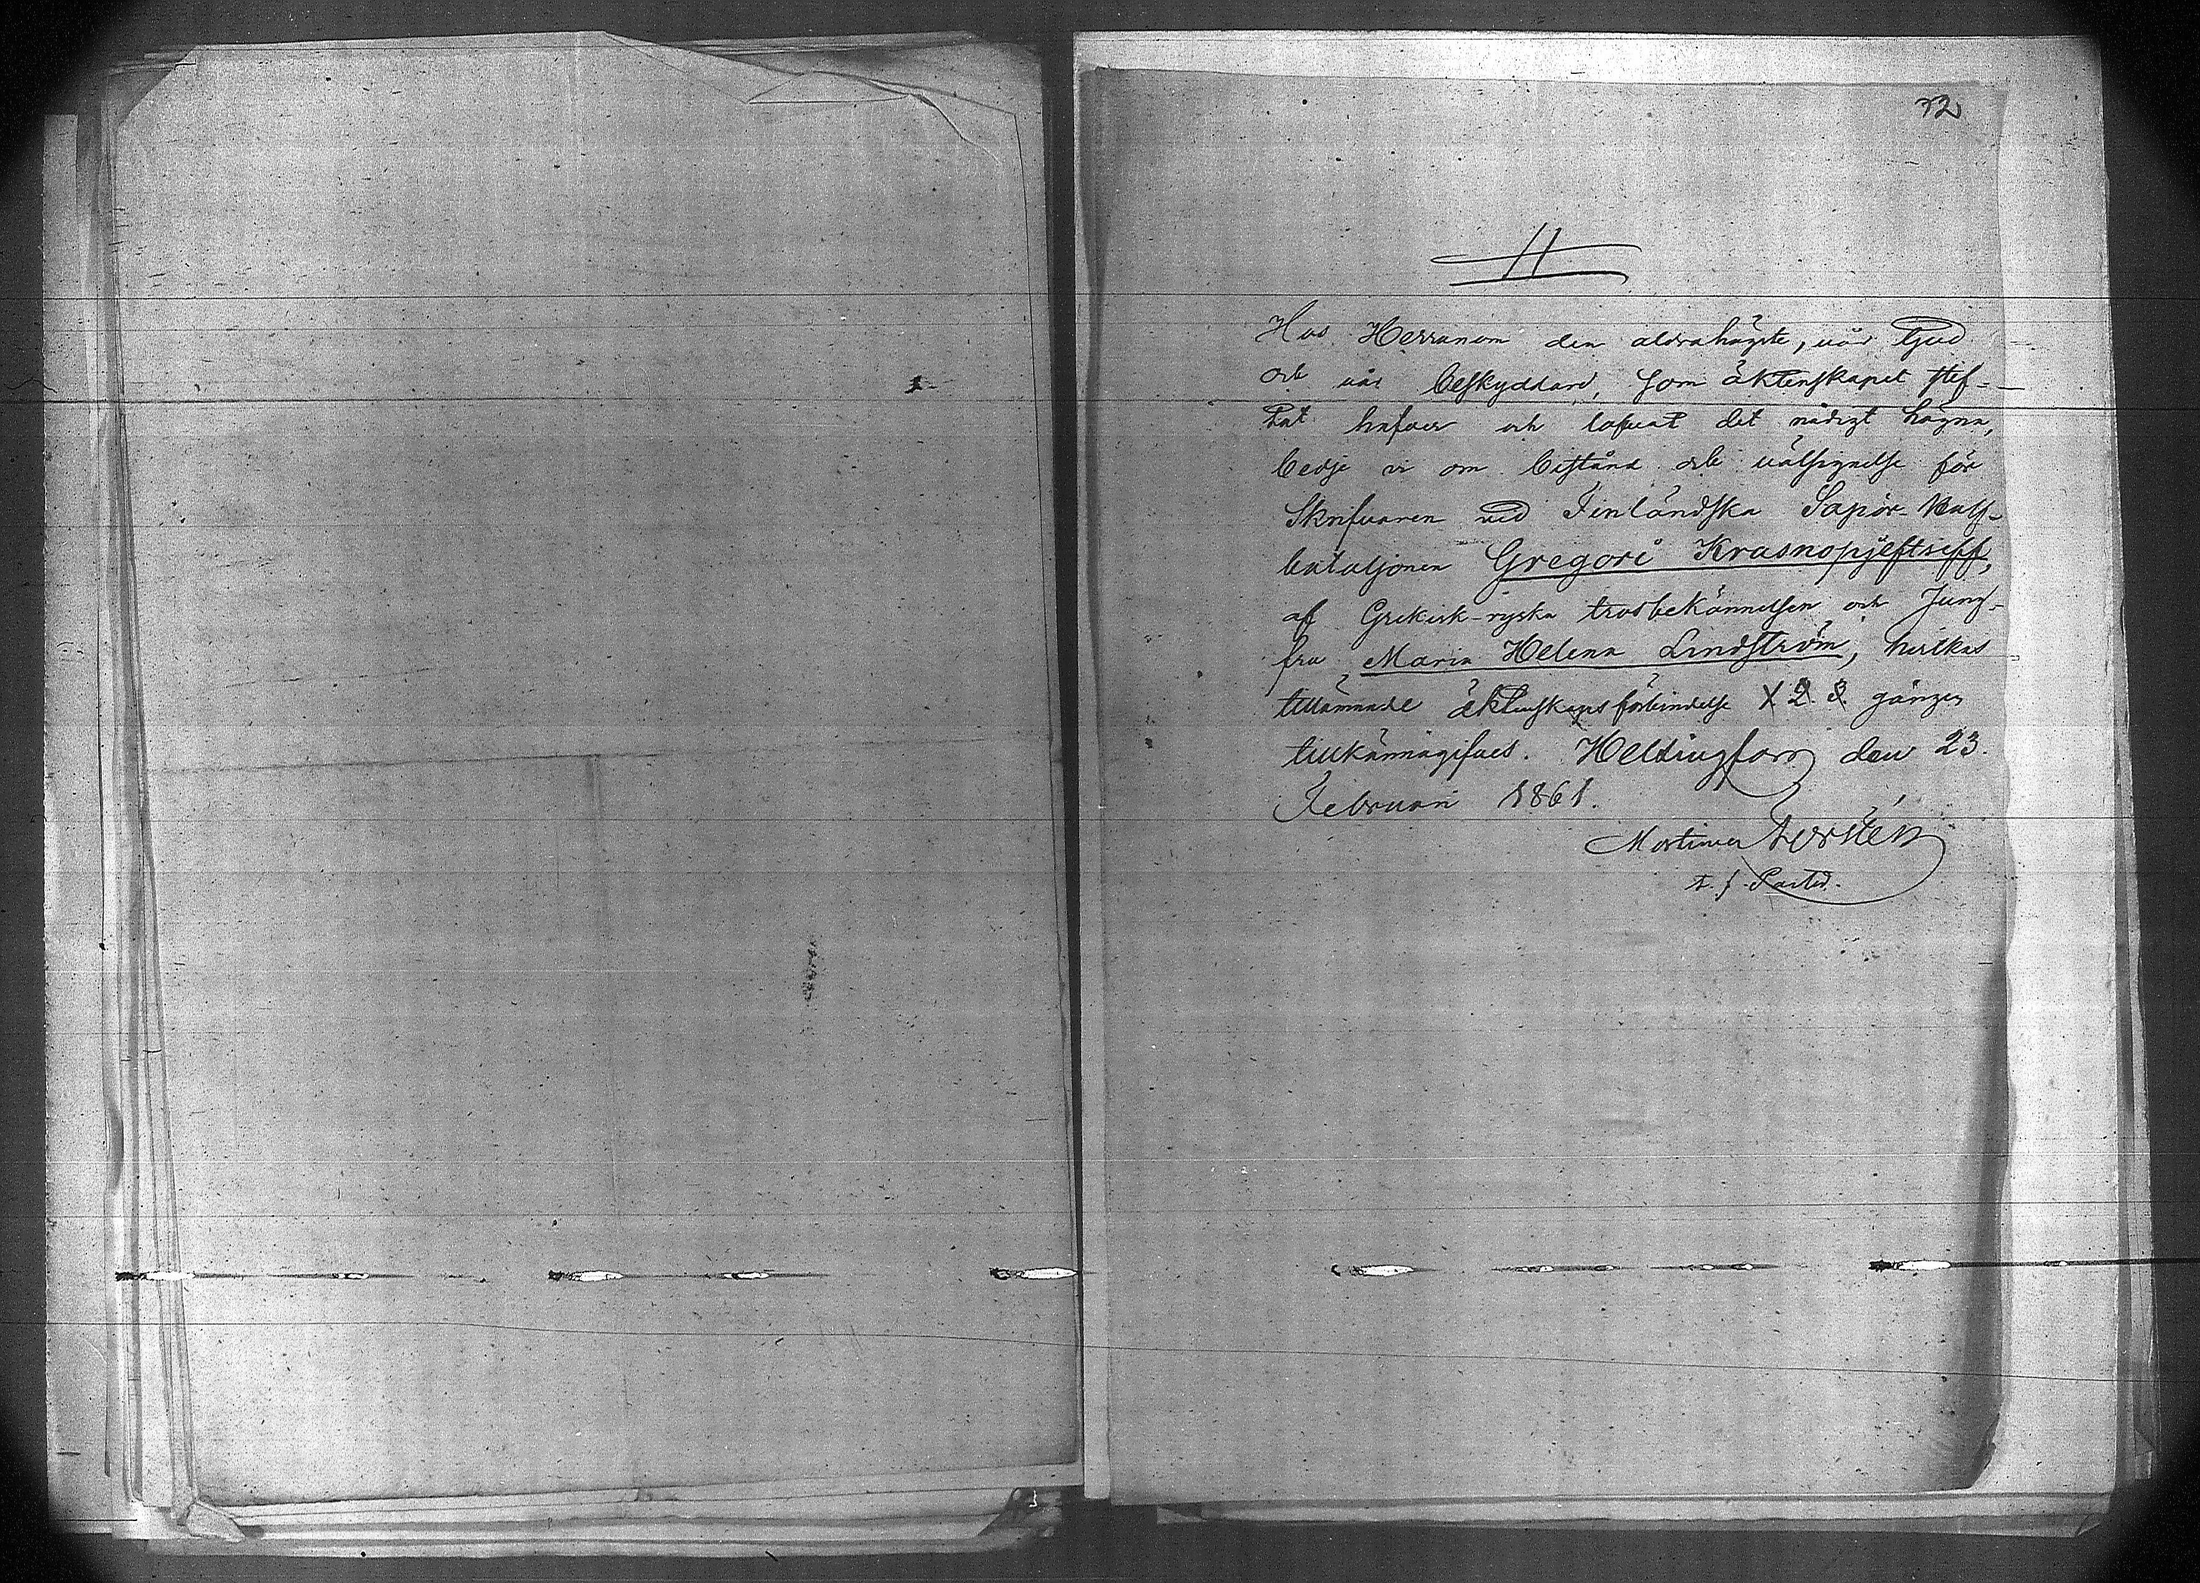 72
H
Hos Herranom den aldrahögste, vår Gud
och vår beskyddare, som äktenskapet stif-
tat hafver och lofvat det nådigt hägna,
bedje vi om bistånd och välsignelse för
Skrifvaren vid Finländska Sapör-
bataljonen Gregori Krasnopjeftseff,
af Grekisk-ryska trosbekännelsen och Jung-
fru Maria Helena Lindström, hvilkas
tillämnade äktenskapsförbindelse 1. 2. 3. gången
tillkännagifves. Helsingfors den 23.
Februari 1861.
Mortimer
t. f. Pastor.